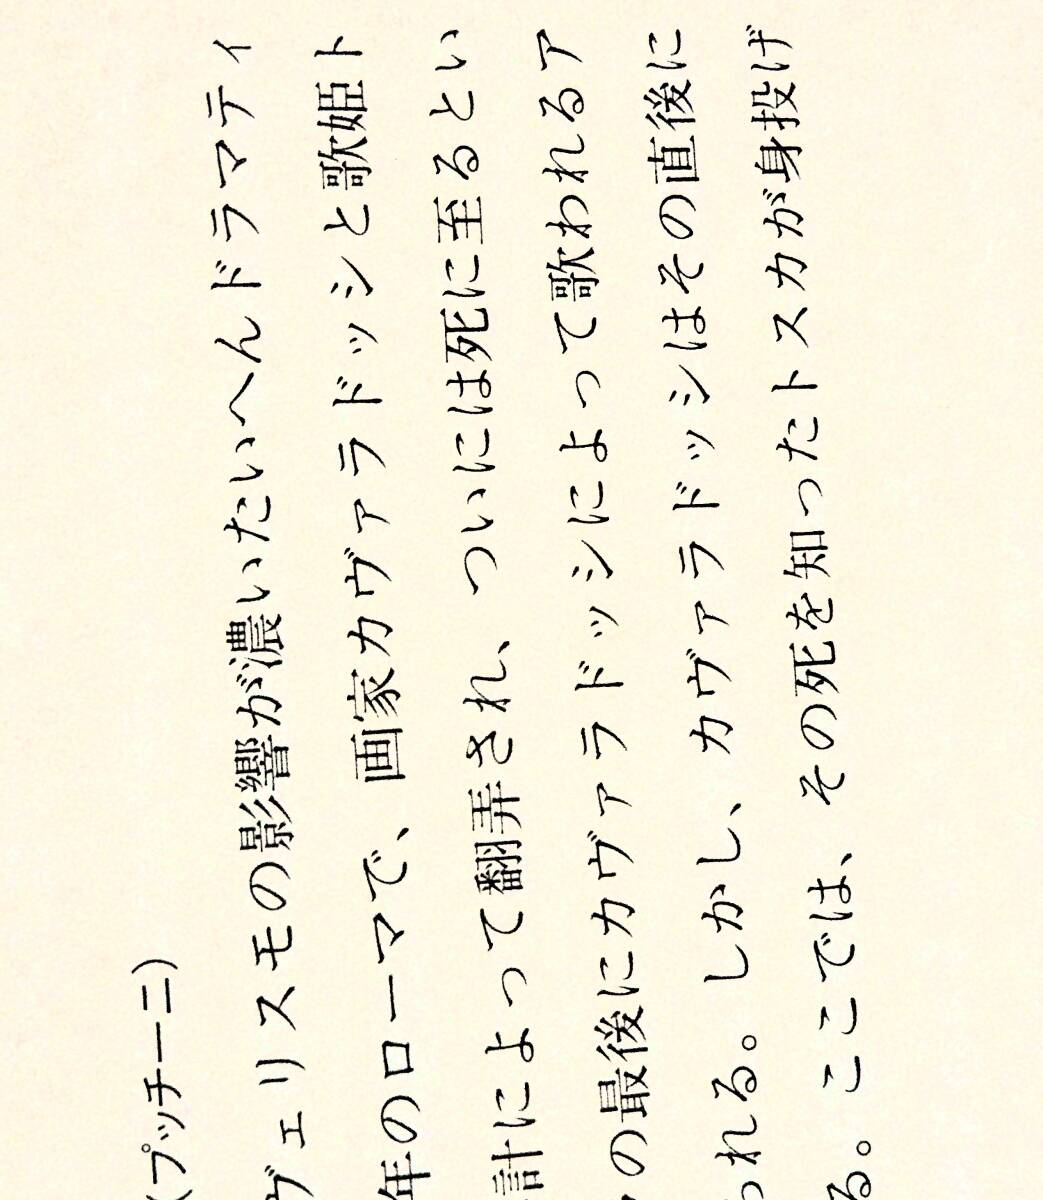 (プッチーニ)
ヴェリスモの影響が濃いたいへんドラマティ
年のローマで、画家カヴァラドッシと歌姫ト
計によって翻弄され、ついには死に至るとい
の最後にカヴァラドッシによって歌われるア
われる。しかし、カヴァラドッシはその直後に
る。ここでは、その死を知ったトスカが身投げ